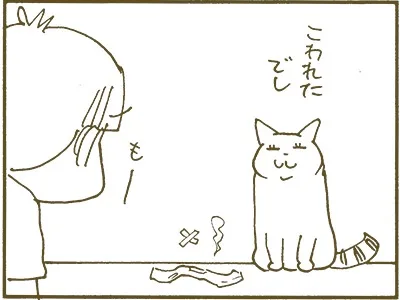 こわれた
でし
もー